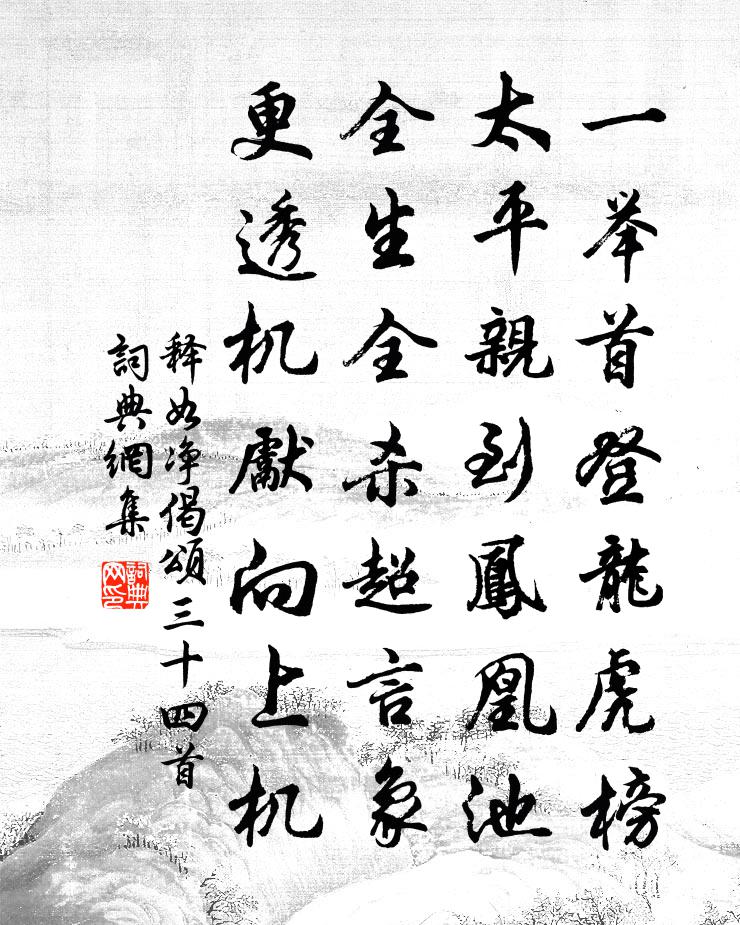 一举首登龍虎榜
太平親到鳳凰池
全生全杀超言象
更透机獻向上机
释如净偈頌三十四首
詞典網集
詞典网印